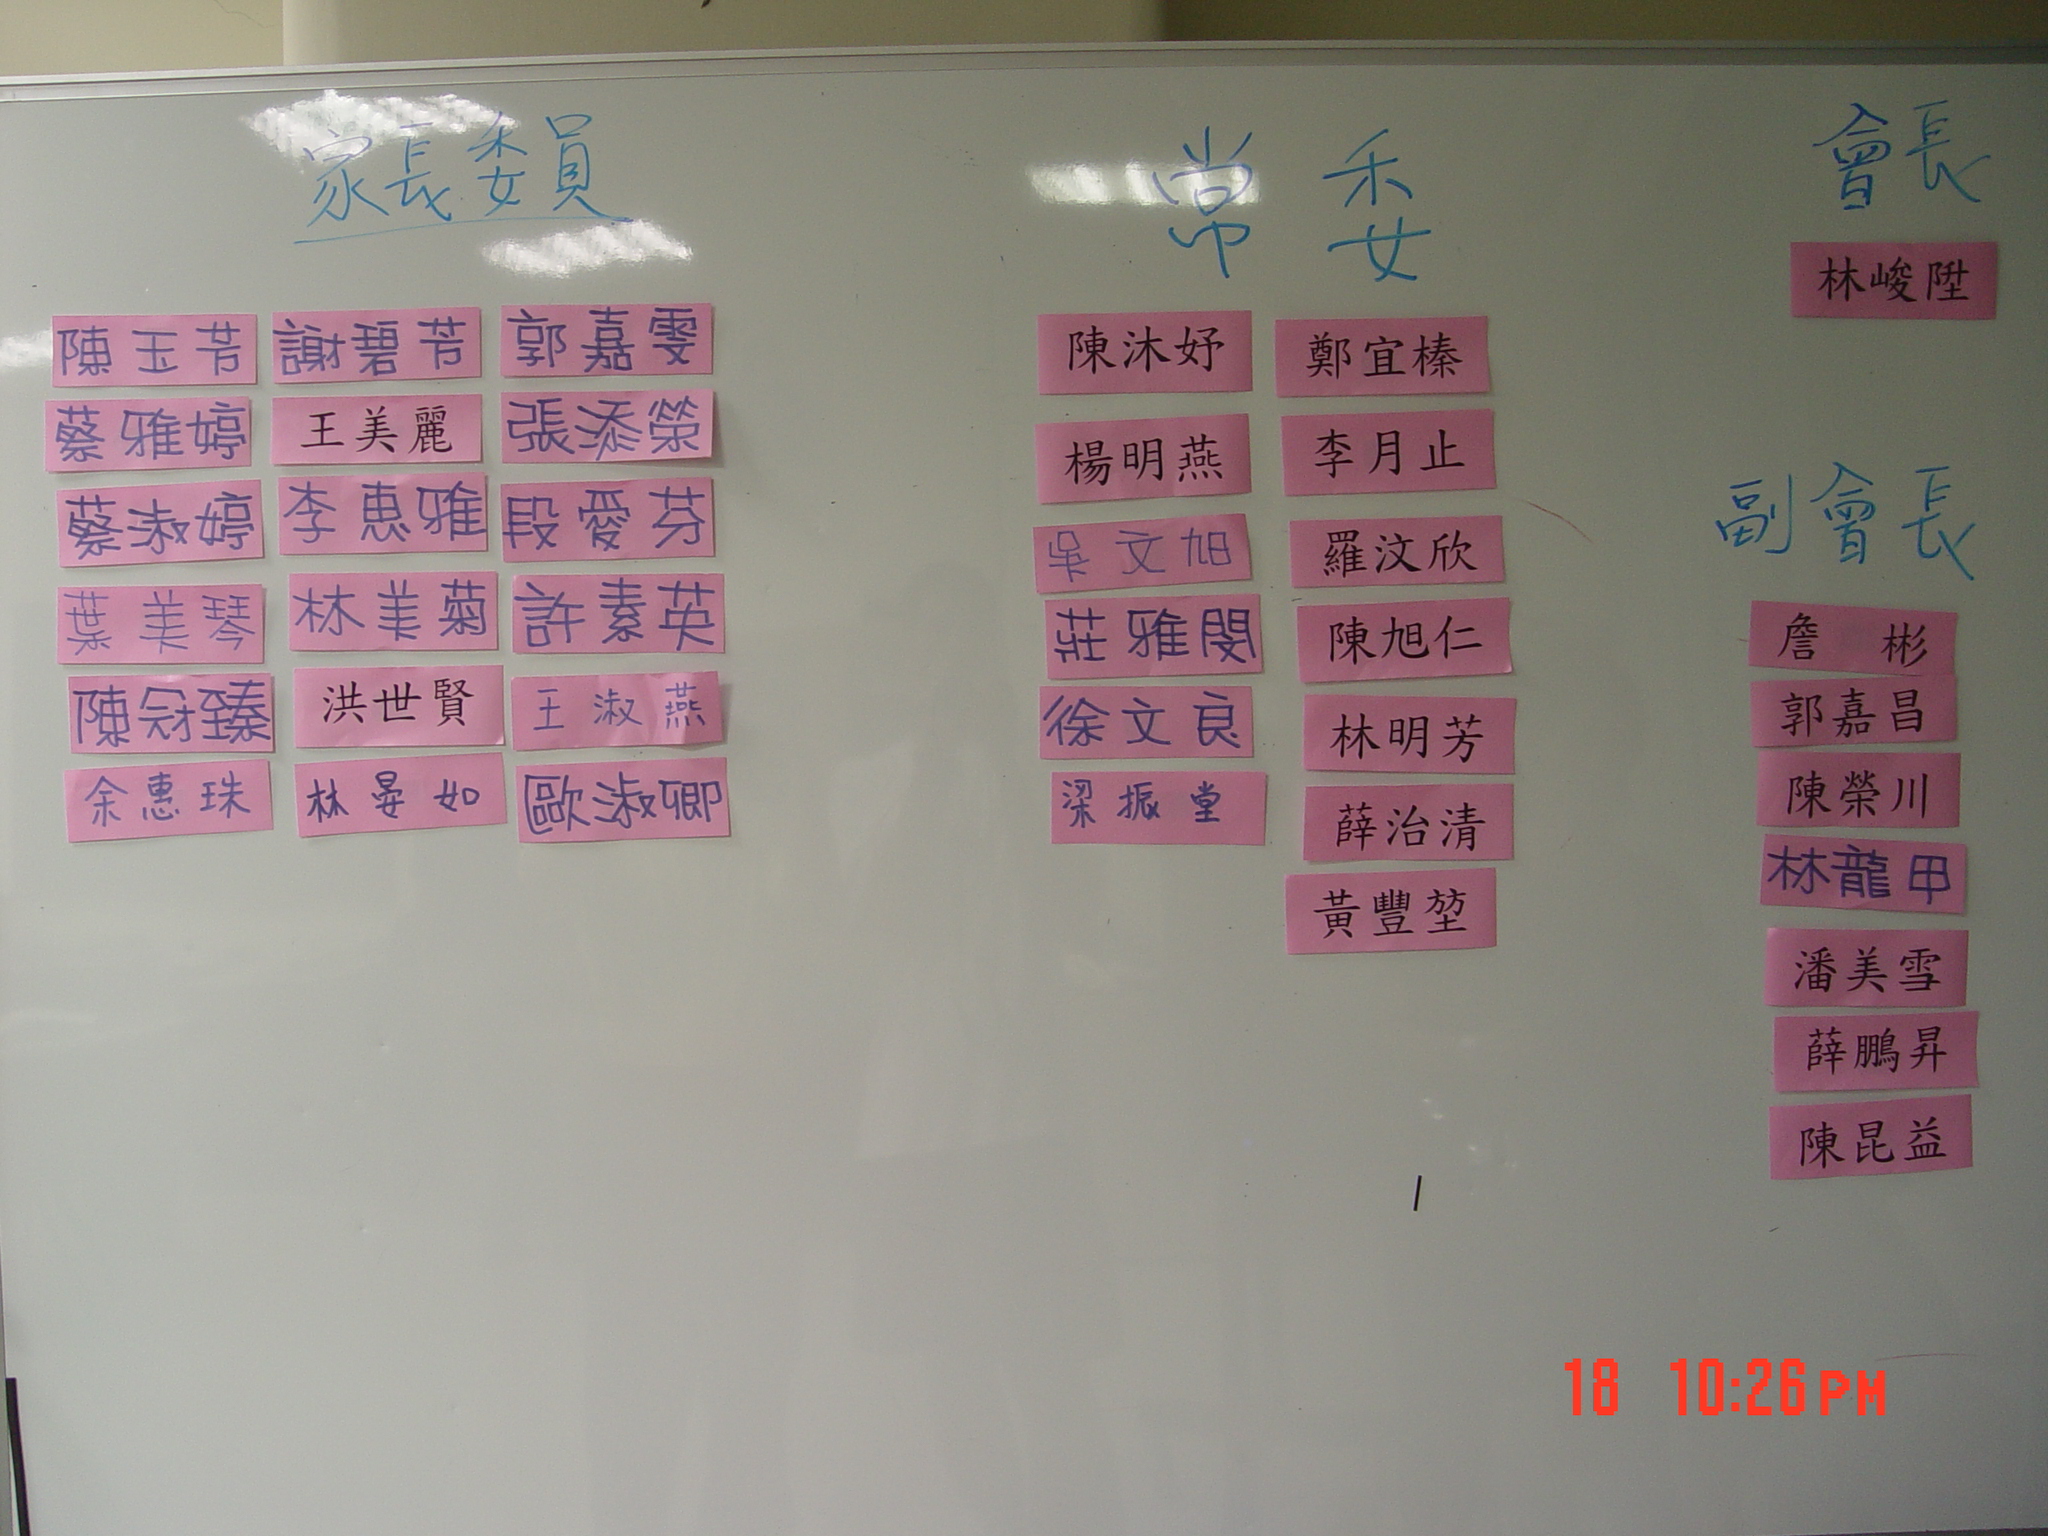 家長委員
陳玉芳 謝碧芳 郭嘉雯
蔡雅婷 王美麗 張添榮
蔡淑婷 李惠雅 段愛芬
葉美琴 林美菊 許素英
陳冠臻 洪世賢 王淑燕
余惠珠 林晏如 歐淑卿
常委
陳沐妤 鄭宜榛
楊明燕 李月止
吳文旭 羅汶欣
莊雅閔 陳旭仁
徐文良 林明芳
梁振堂 薛治清
黃豐堃
會長
林峻陞
副會長
詹 彬
郭嘉昌
陳榮川
林龍甲
潘美雪
薛鵬昇
陳昆益
18 10:26PM